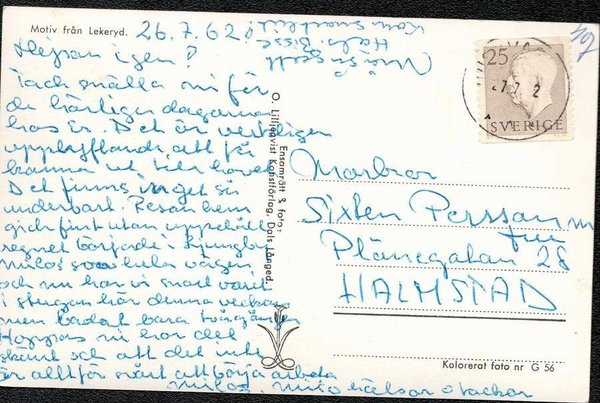 Motiv från Lekeryd.
26.7.62
Hejsan igen!
Tack snälla ni för
de härliga dagarna
hos Er. Det är verkligen
upplyftande att få
komma ut till havet
Det finns inget så
underbart. Resan hem
gick fint utan uppehåll
regnet började i Ljungby
sov hela vägen
och nu har vi snart varit
i stugan här denna veckan
men badat bara två gånger
Hoppas ni har det
skönt och att det inte
är alltför svårt att börja arbeta
hälsar o tackar
Kom snart hit
Ensamrätt & foto:
O. Lilljeqvist Konstförlag, Dals Långed.
25
SVERIGE
107
Morbror
Sixten Persson m
fru
Plönegatan 28
HALMSTAD
Kolorerat foto nr G 56